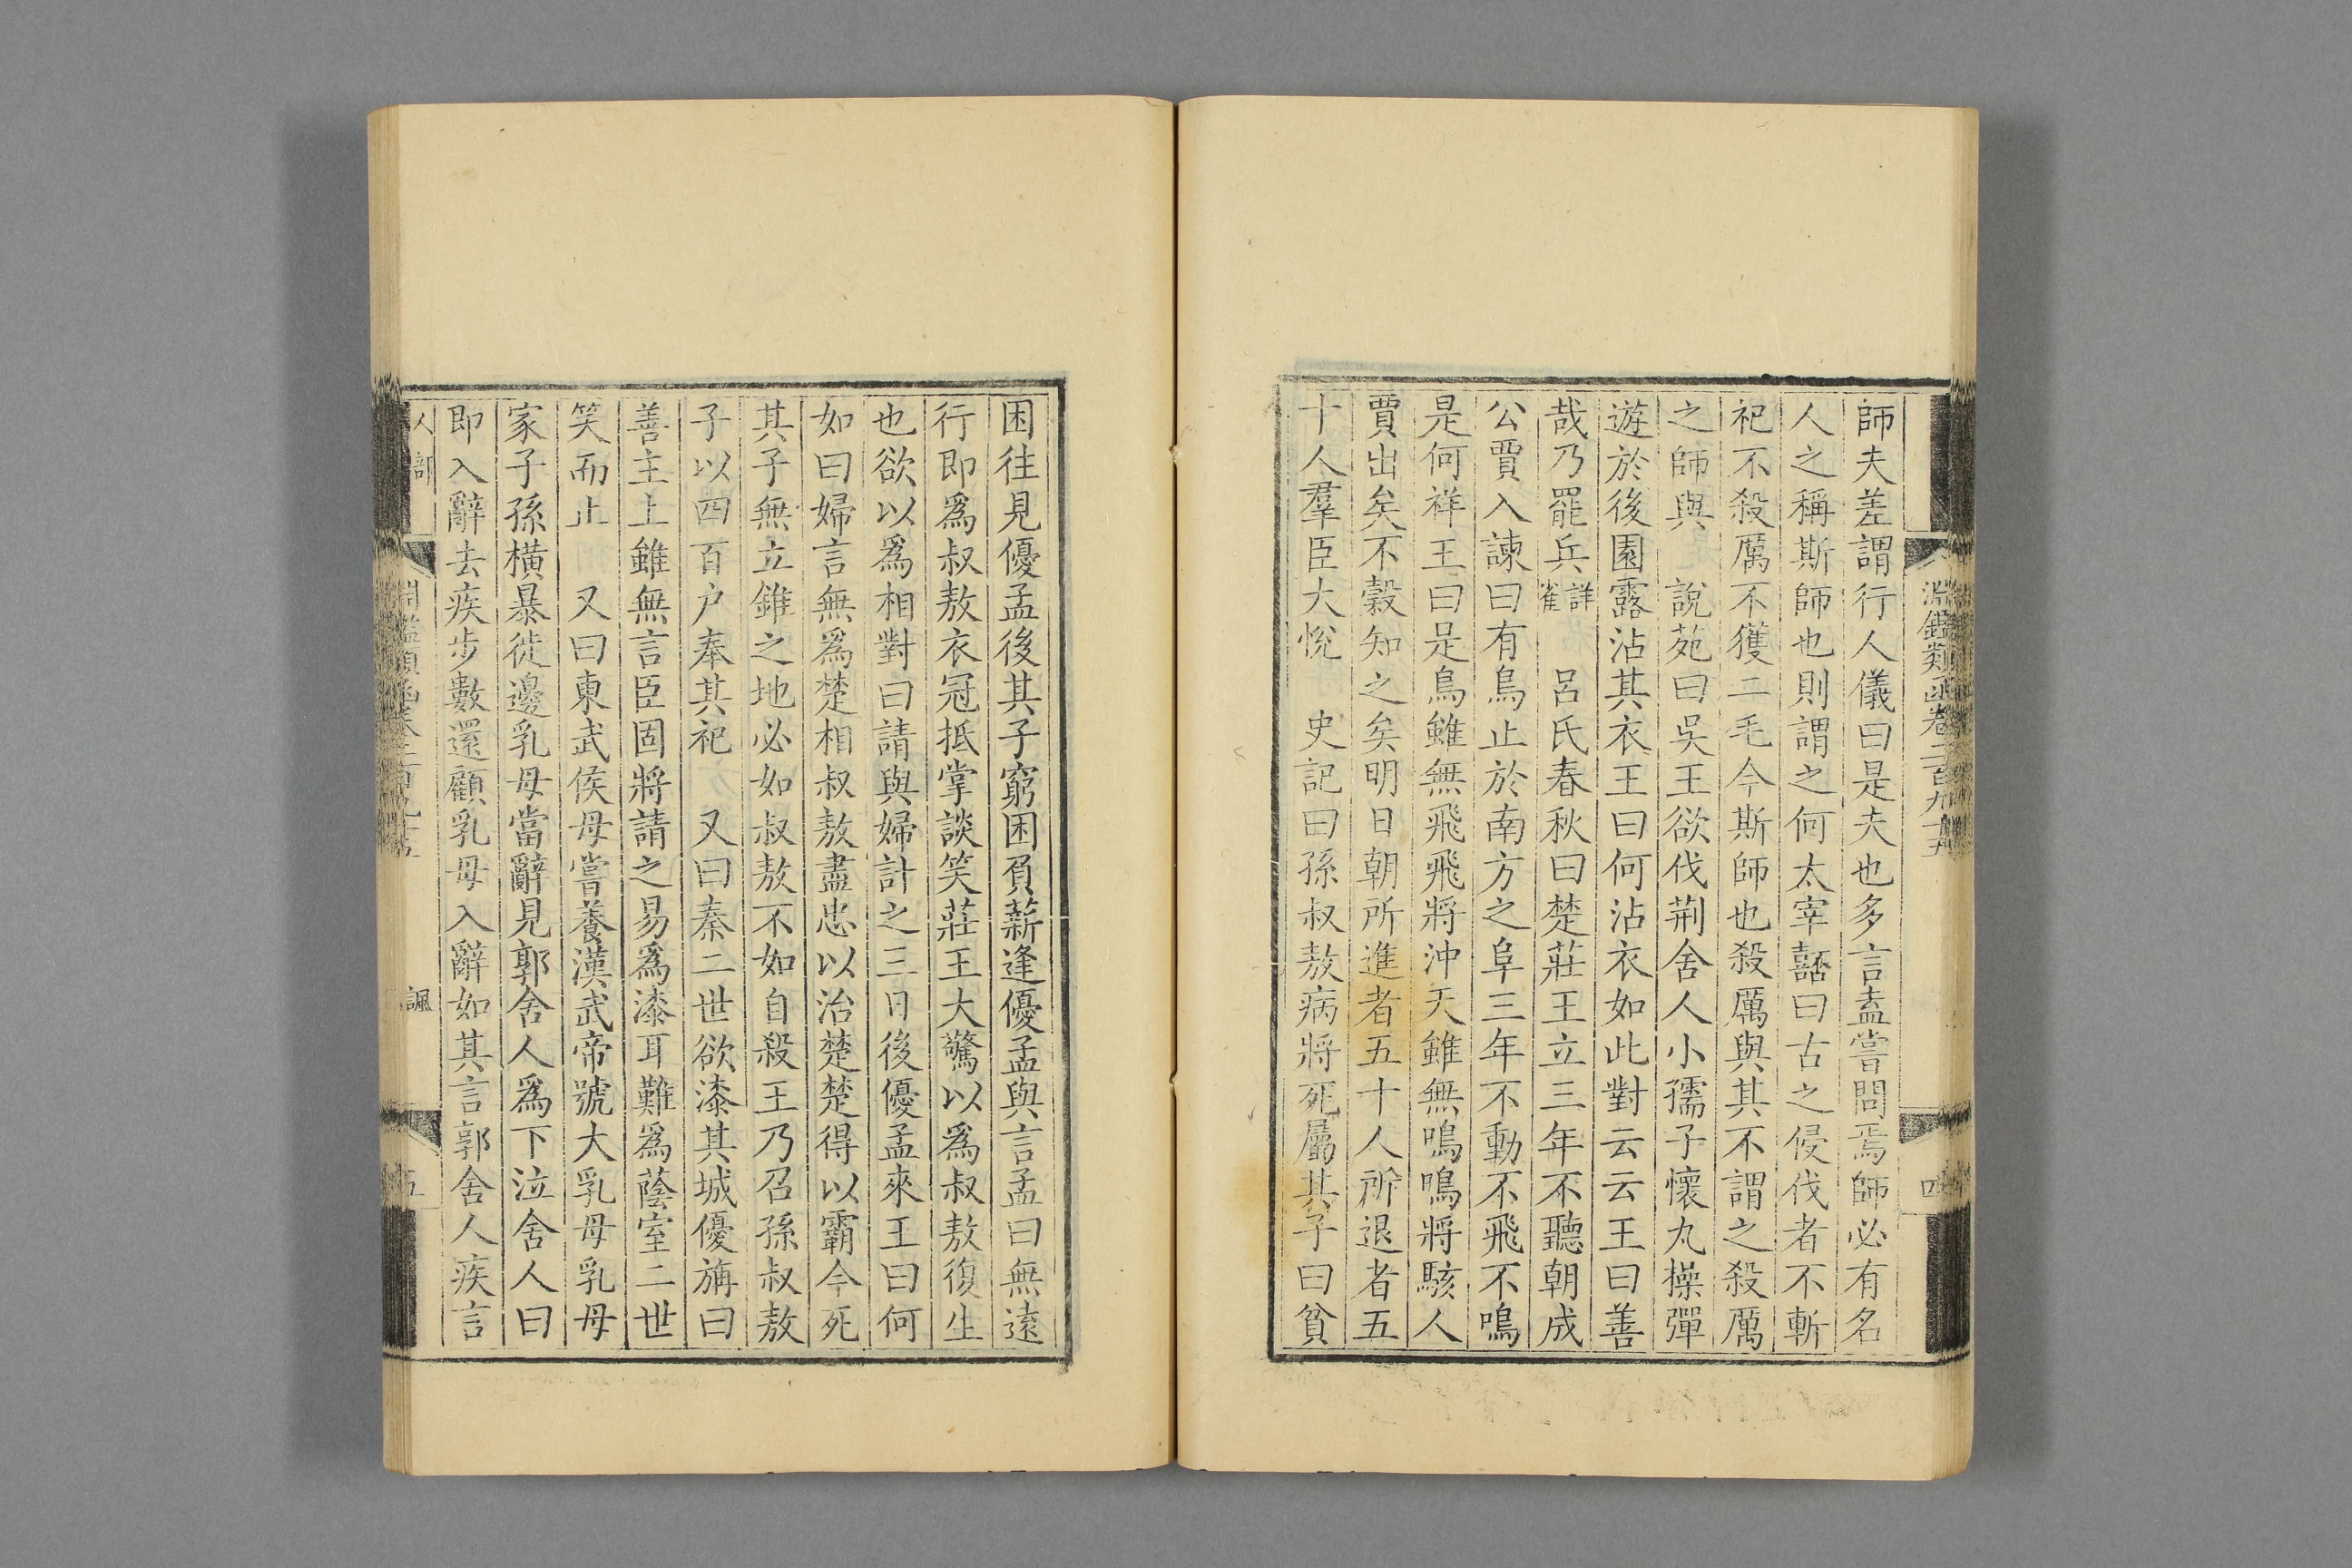 淵鑑類函卷二百九十五
四
師夫差謂行人儀曰是夫也多言盍嘗問焉師必有名
人之稱斯師也則謂之何太宰嚭曰古之侵伐者不斬
祀不殺厲不獲二毛今斯師也殺厲與其不謂之殺厲
之師與 說苑曰吳王欲伐荆舍人小孺子懷丸操彈
遊於後園露沾其衣王曰何沾衣如此對云云王曰善
哉乃罷兵詳雀 呂氏春秋曰楚莊王立三年不聽朝成
公賈入諫曰有鳥止於南方之阜三年不動不飛不鳴
是何祥王曰是鳥雖無飛飛將沖天雖無鳴鳴將駭人
賈出矣不穀知之矣明日朝所進者五十人所退者五
十人羣臣大悅 史記曰孫叔敖病將死屬其子曰貧
困往見優孟後其子窮困負薪逢優孟與言孟曰無遠
行即爲叔敖衣冠抵掌談笑莊王大驚以爲叔敖復生
也欲以爲相對曰請與婦計之三日後優孟來王曰何
如曰婦言無爲楚相叔敖盡忠以治楚楚得以霸今死
其子無立錐之地必如叔敖不如自殺王乃召孫叔敖
子以四百户奉其祀 又曰秦二世欲漆其城優旃曰
善主上雖無言臣固將請之易爲漆耳難爲蔭室二世
笑而止 又曰東武侯母嘗養漢武帝號大乳母乳母
家子孫橫暴徙邊乳母當辭見郭舍人爲下泣舍人曰
即入辭去疾步數還顧乳母入辭如其言郭舍人疾言
人部
淵鑑類函卷二百九十五
諷
五